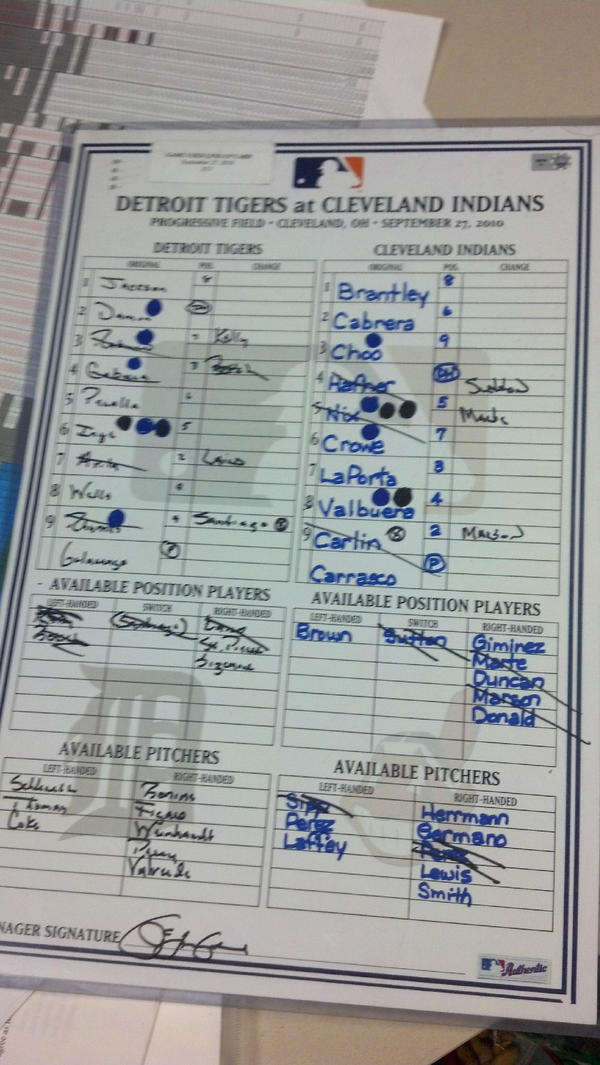 DETROIT TIGERS at CLEVELAND INDIANS
PROGRESSIVE FIELD - CLEVELAND, OH - SEPTEMBER 27, 2010
DETROIT TIGERS
ORIGINAL POS. CHANGE
1 Jackson 8
2 Damon DH
3 Kelly
4 Cabrera 3 Boesch
5 Peralta 6
6 Inge 5
7 Avila 2 Laird
8 Wells
9 Santiago S
Galarraga P
CLEVELAND INDIANS
ORIGINAL POS. CHANGE
1 Brantley 8
2 Cabrera 6
3 Choo 9
4 Hafner DH
5 Nix 5 Marte
6 Crowe 7
7 LaPorta 3
8 Valbuena 4
9 Carlin S 2 Marson
Carrasco P
AVAILABLE POSITION PLAYERS
LEFT-HANDED SWITCH RIGHT-HANDED
Boesch Santiago Laird
Sizemore
AVAILABLE POSITION PLAYERS
LEFT-HANDED SWITCH RIGHT-HANDED
Brown Sutton Giminez
Marte
Duncan
Marson
Donald
AVAILABLE PITCHERS
LEFT-HANDED RIGHT-HANDED
Schlereth Bonine
Thomas Figaro
Coke Weinhardt
Perry
Valverde
AVAILABLE PITCHERS
LEFT-HANDED RIGHT-HANDED
Sipp Herrmann
Perez Germano
Laffey Perez
Lewis
Smith
NAGER SIGNATURE
Authentic